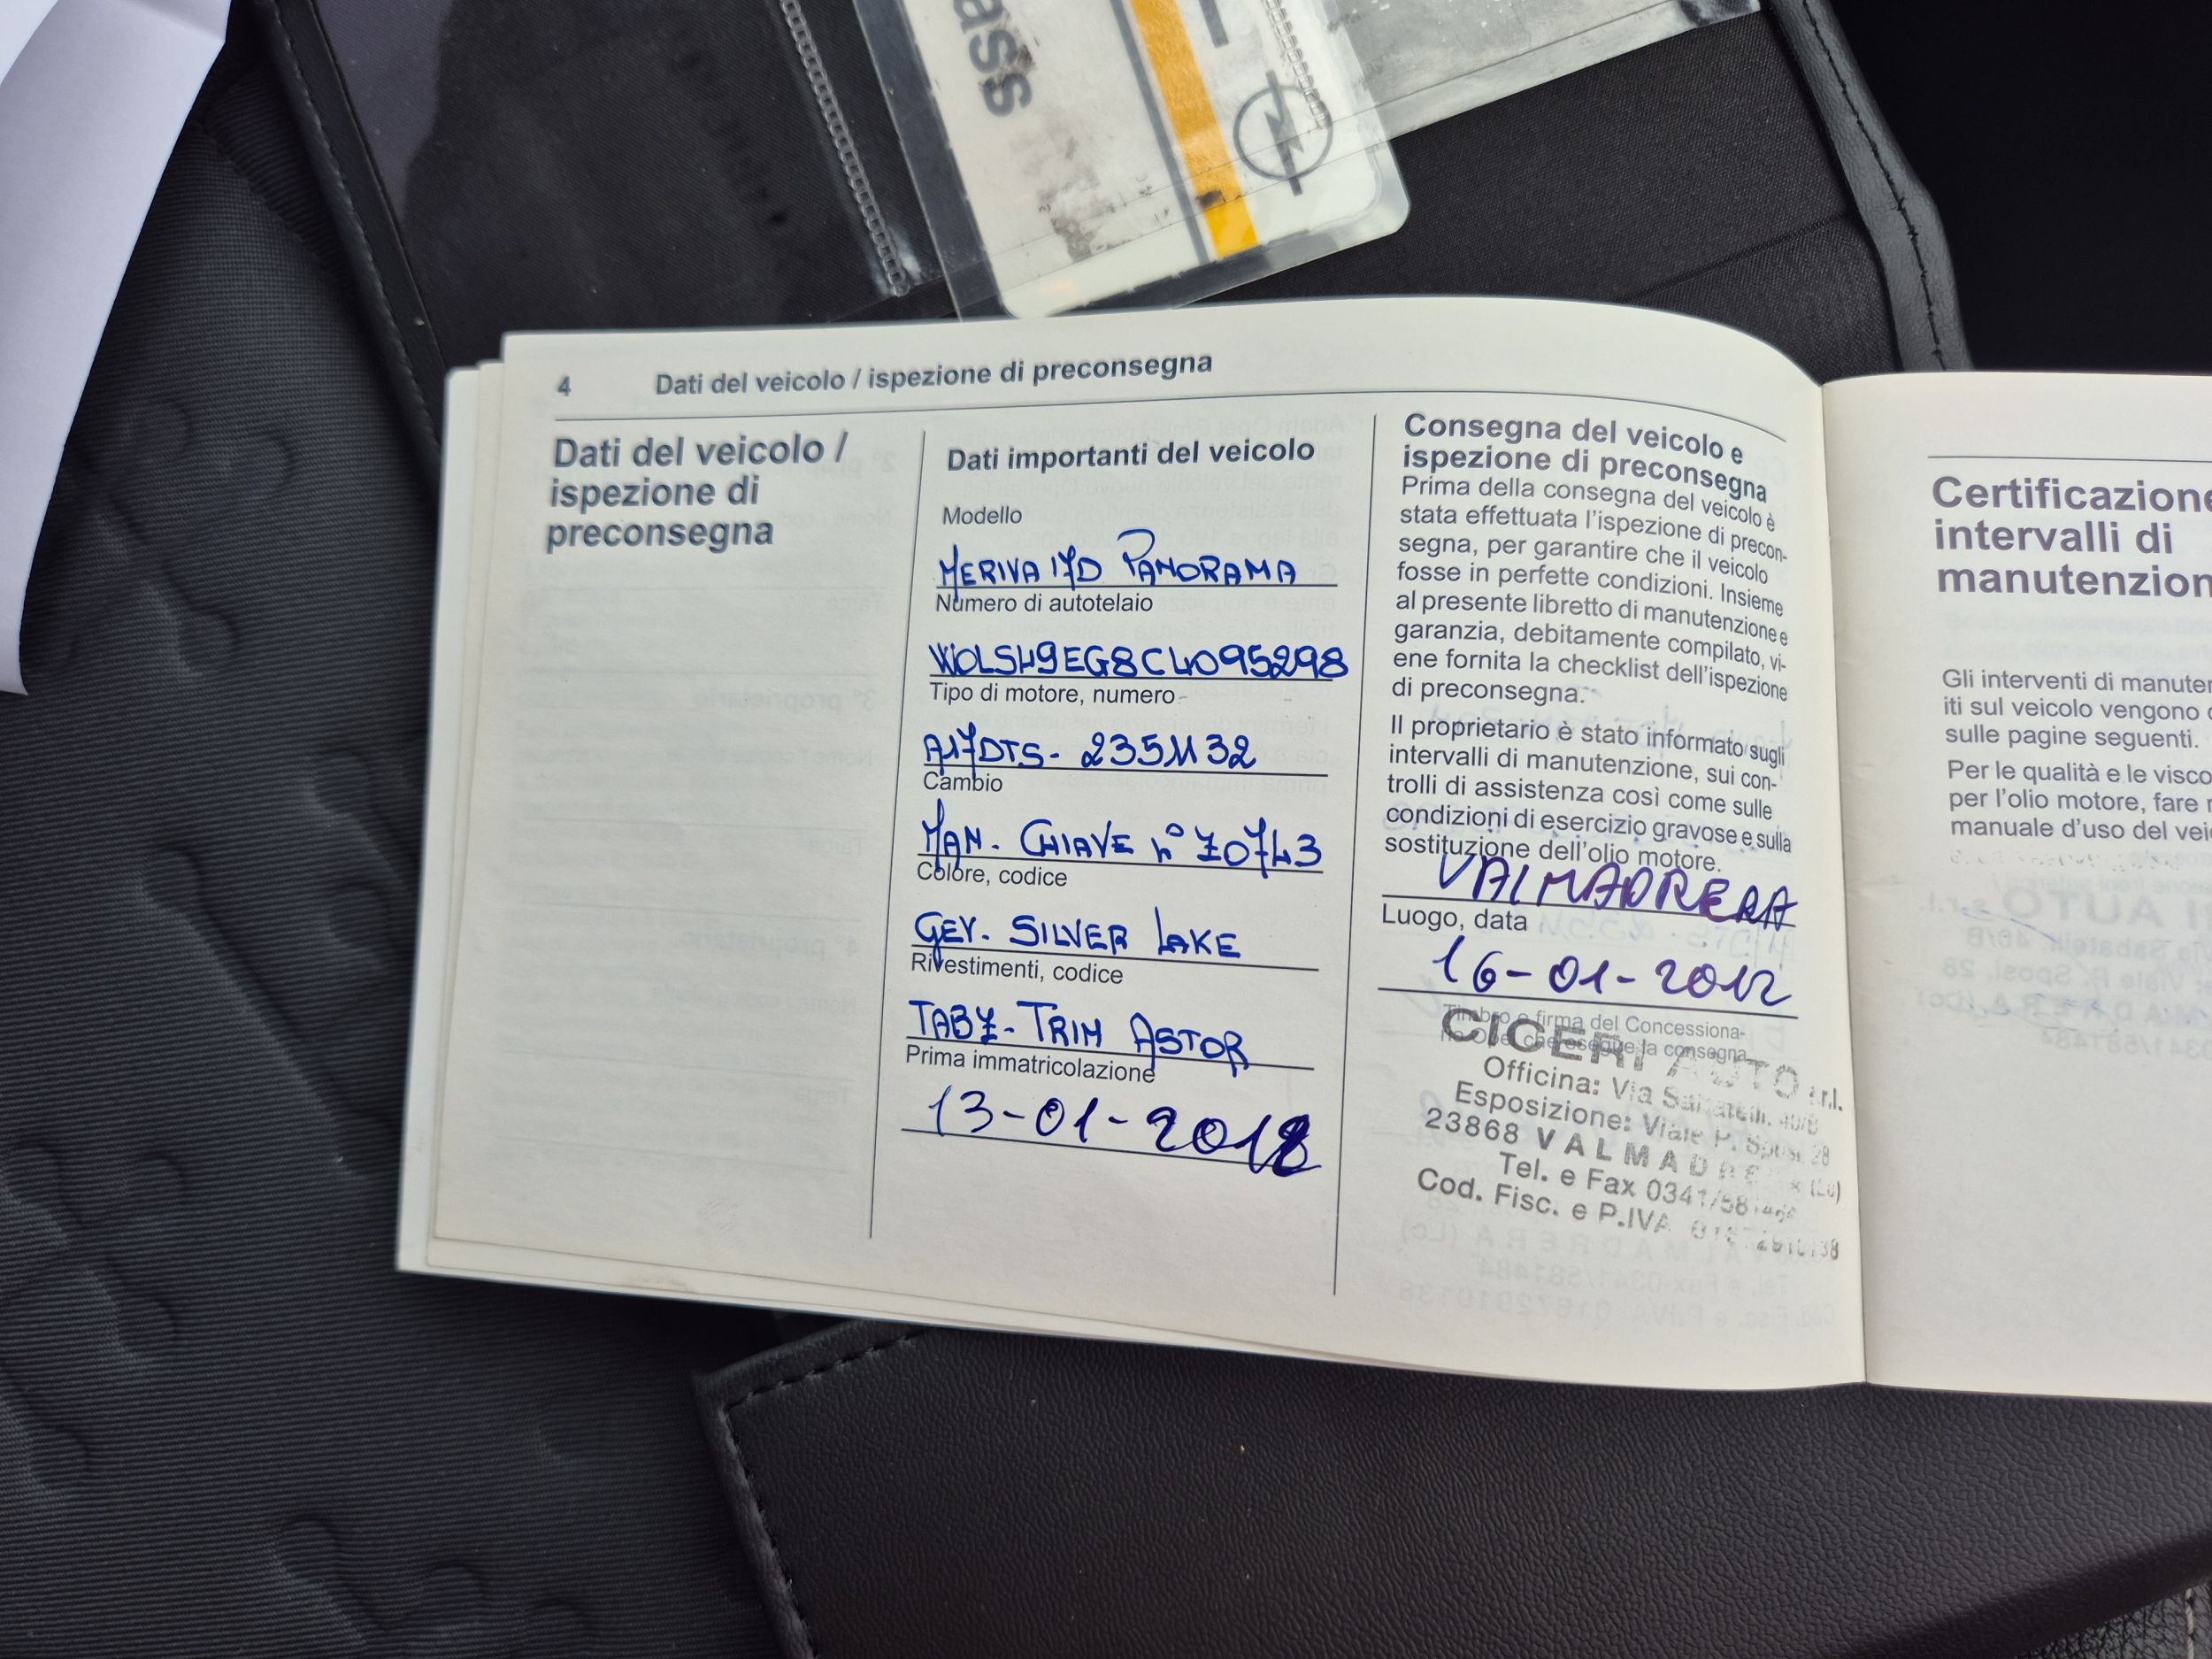 ass
4 Dati del veicolo / ispezione di preconsegna
Dati del veicolo /
ispezione di
preconsegna
Dati importanti del veicolo
Modello
MERIVA 17D PANORAMA
Numero di autotelaio
W0LSH9EG8C4095298
Tipo di motore, numero
A17DTS - 235M32
Cambio
MAN. CHIAVE n° Z0743
Colore, codice
GEV. SILVER LAKE
Rivestimenti, codice
TABZ - TRIM ASTOR
Prima immatricolazione
13-01-2012
Consegna del veicolo e
ispezione di preconsegna
Prima della consegna del veicolo è
stata effettuata l'ispezione di precon-
segna, per garantire che il veicolo
fosse in perfette condizioni. Insieme
al presente libretto di manutenzione e
garanzia, debitamente compilato, vi-
ene fornita la checklist dell'ispezione
di preconsegna.
Il proprietario è stato informato sugli
intervalli di manutenzione, sui con-
trolli di assistenza così come sulle
condizioni di esercizio gravose e sulla
sostituzione dell'olio motore.
VALMADRERA
Luogo, data
16-01-2012
Timbro e firma del Concessiona-
rio Opel che esegue la consegna
CICERI AUTO s.r.l.
Officina: Via Sabatelli, 40/B
Esposizione: Viale P. Sposi, 28
23868 VALMADRERA (Lc)
Tel. e Fax 0341/581484
Cod. Fisc. e P.IVA
Certificazione
intervalli di
manutenzion
Gli interventi di manuten
iti sul veicolo vengono
sulle pagine seguenti.
Per le qualità e le visco
per l'olio motore, fare
manuale d'uso del vei